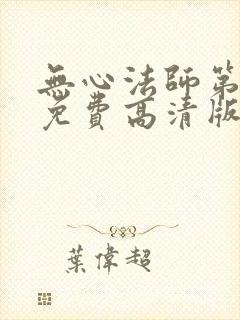 無心法師第
免費高清版
葉偉超